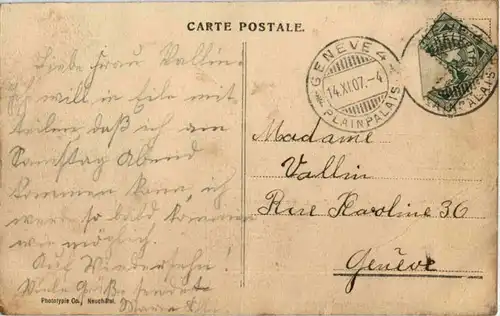 CARTE POSTALE.
Liebe Frau Vallin
Ich will in Eile mit
teilen, daß ich am
Samstag Abend
kommen kann, ich
werde so bald kommen
wie möglich.
Auf Wiedersehn!
Viele Grüße sendet
Marie
Phototypie Co., Neuchâtel.
GENÈVE 4
14.XI.07.-4
PLAINPALAIS
PLAINPALAIS
Madame
Vallin
Rue Karoline 36
Genève